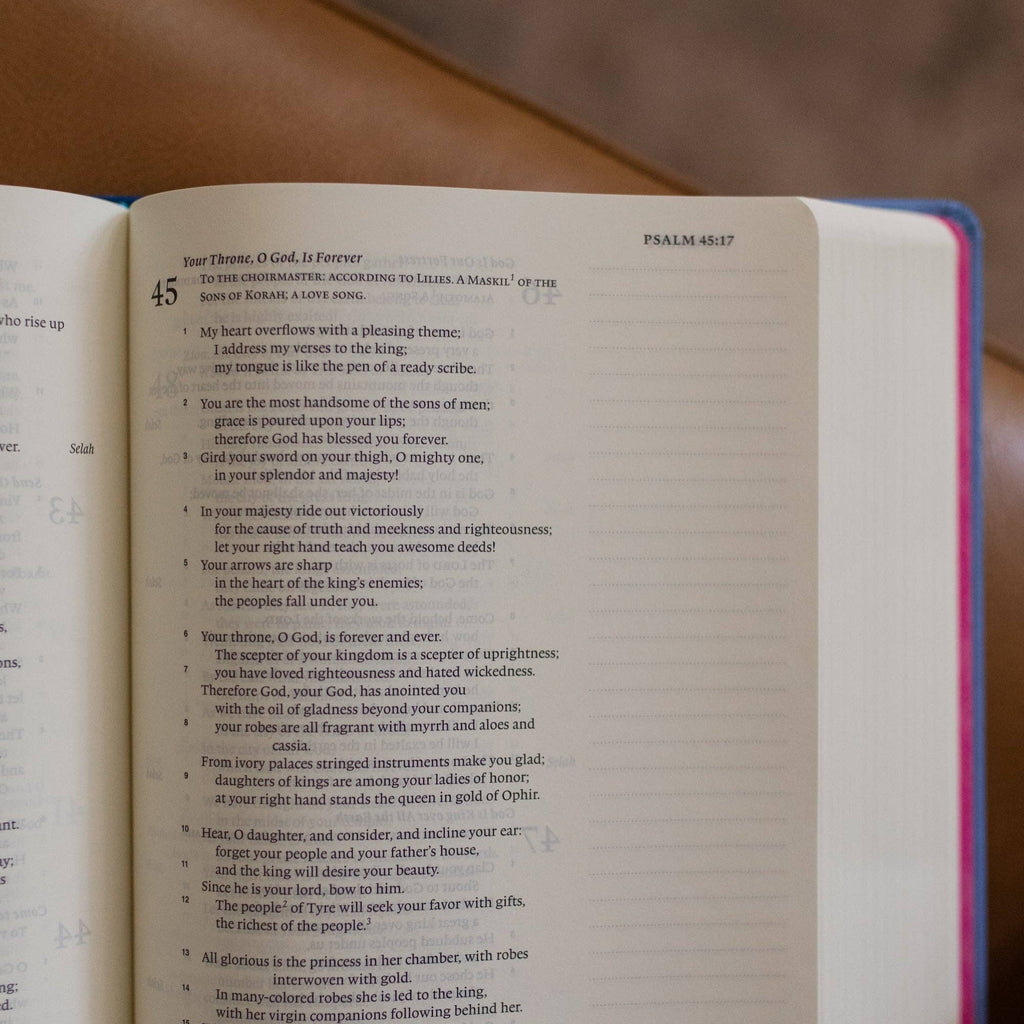 who rise up
Selah
PSALM 45:17
Your Throne, O God, Is Forever
45 TO THE CHOIRMASTER: ACCORDING TO LILIES. A MASKIL¹ OF THE
SONS OF KORAH; A LOVE SONG.
1 My heart overflows with a pleasing theme;
I address my verses to the king;
my tongue is like the pen of a ready scribe.
2 You are the most handsome of the sons of men;
grace is poured upon your lips;
therefore God has blessed you forever.
3 Gird your sword on your thigh, O mighty one,
in your splendor and majesty!
4 In your majesty ride out victoriously
for the cause of truth and meekness and righteousness;
let your right hand teach you awesome deeds!
5 Your arrows are sharp
in the heart of the king's enemies;
the peoples fall under you.
6 Your throne, O God, is forever and ever.
The scepter of your kingdom is a scepter of uprightness;
7 you have loved righteousness and hated wickedness.
Therefore God, your God, has anointed you
with the oil of gladness beyond your companions;
8 your robes are all fragrant with myrrh and aloes and
cassia.
From ivory palaces stringed instruments make you glad;
9 daughters of kings are among your ladies of honor;
at your right hand stands the queen in gold of Ophir.
10 Hear, O daughter, and consider, and incline your ear:
forget your people and your father's house,
11 and the king will desire your beauty.
Since he is your lord, bow to him.
12 The people² of Tyre will seek your favor with gifts,
the richest of the people.³
13 All glorious is the princess in her chamber, with robes
interwoven with gold.
14 In many-colored robes she is led to the king,
with her virgin companions following behind her.
15